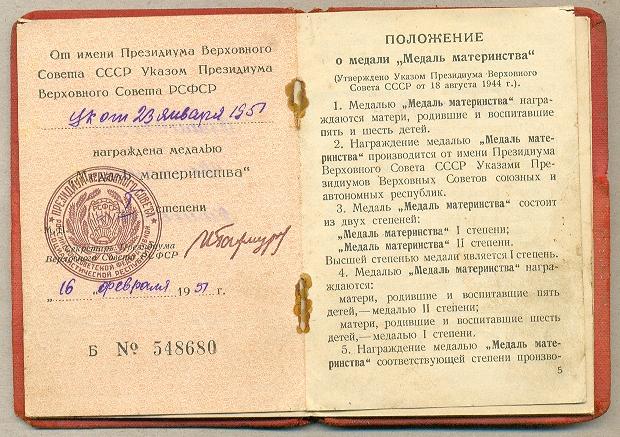 От имени Президиума Верховного
Совета СССР Указом Президиума
Верховного Совета РСФСР
Ук от 23 января 1951
награждена медалью
„Медаль материнства“
степени
Секретарь Президиума
Верховного Совета РСФСР
„16 „ февраля 1951 г.
Б № 548680
ПОЛОЖЕНИЕ
о медали „Медаль материнства“
(Утверждено Указом Президиума Верховного
Совета СССР от 18 августа 1944 г.).
1. Медалью „Медаль материнства“ награ-
ждаются матери, родившие и воспитавшие
пять и шесть детей.
2. Награждение медалью „Медаль мате-
ринства“ производится от имени Президиума
Верховного Совета СССР Указами Пре-
зидиумов Верховных Советов союзных и
автономных республик.
3. Медаль „Медаль материнства“ состоит
из двух степеней:
„Медаль материнства“ I степени;
„Медаль материнства“ II степени.
Высшей степенью медали является I степень.
4. Медалью „Медаль материнства“ награ-
ждаются:
матери, родившие и воспитавшие пять
детей,—медалью II степени;
матери, родившие и воспитавшие шесть
детей,—медалью I степени.
5. Награждение медалью „Медаль мате-
ринства“ соответствующей степени произво-
5